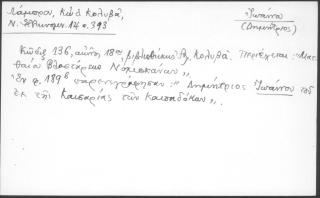 Λάμπρου, Κώδ. Κολυβᾶ,
Ν. Ἑλληνομν. 14 σ. 393
Ἰωάννου
(Δημήτριος)
Κῶδιξ 136, αἰών. 18ου βιβλιοθήκης Ἀλ. Κολυβᾶ. Περιέχεται: "Ματ-
θαίου Βλαστάρεως Νόμος κανών".
Ἐν φ. 189β παρασημείωσις: "Δημήτριος Ἰωάννου τοῦ
ἐκ τῆς Καισαρίας τῶν Καππαδόκων".